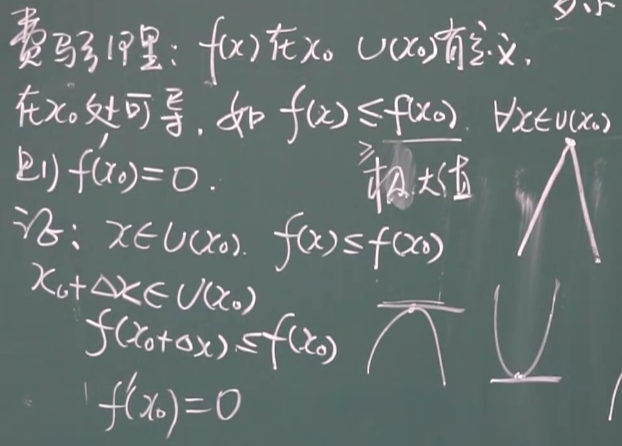 费马引理：f(x)在x₀ U(x₀)有定义，
在x₀处可导，如 f(x)≤f(x₀) ∀x∈U(x₀)
≥
则 f'(x₀)=0. 极大值
证：x∈U(x₀). f(x)≤f(x₀)
x₀+Δx∈U(x₀)
f(x₀+Δx)≤f(x₀)
f'(x₀)=0